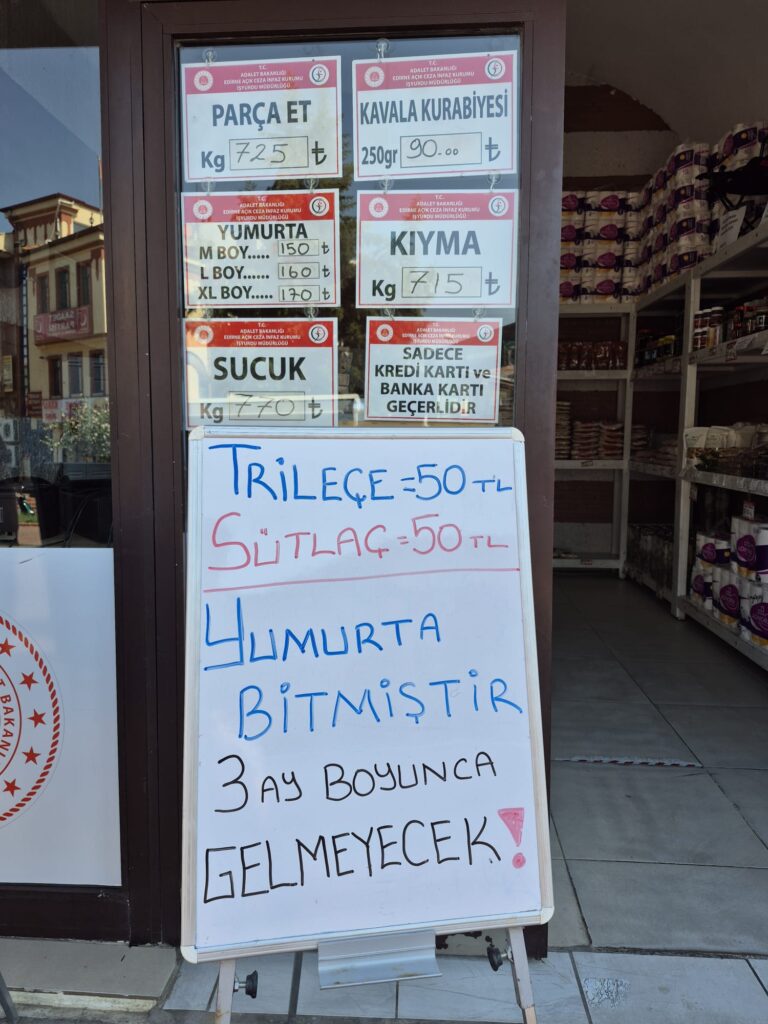 T.C.
ADALET BAKANLIĞI
EDİRNE AÇIK CEZA İNFAZ KURUMU
İŞYURDU MÜDÜRLÜĞÜ
PARÇA ET
Kg 725 ₺
T.C.
ADALET BAKANLIĞI
EDİRNE AÇIK CEZA İNFAZ KURUMU
İŞYURDU MÜDÜRLÜĞÜ
KAVALA KURABİYESİ
250gr 90.00 ₺
T.C.
ADALET BAKANLIĞI
EDİRNE AÇIK CEZA İNFAZ KURUMU
İŞYURDU MÜDÜRLÜĞÜ
YUMURTA
M BOY..... 150 ₺
L BOY..... 160 ₺
XL BOY..... 170 ₺
T.C.
ADALET BAKANLIĞI
EDİRNE AÇIK CEZA İNFAZ KURUMU
İŞYURDU MÜDÜRLÜĞÜ
KIYMA
Kg 715 ₺
T.C.
ADALET BAKANLIĞI
EDİRNE AÇIK CEZA İNFAZ KURUMU
İŞYURDU MÜDÜRLÜĞÜ
SUCUK
Kg 770 ₺
T.C.
ADALET BAKANLIĞI
EDİRNE AÇIK CEZA İNFAZ KURUMU
İŞYURDU MÜDÜRLÜĞÜ
SADECE
KREDİ KARTI ve
BANKA KARTI
GEÇERLİDİR
TRİLEÇE=50 TL
SÜTLAÇ=50 TL
YUMURTA
BİTMİŞTİR
3 AY BOYUNCA
GELMEYECEK!
T BAKANI